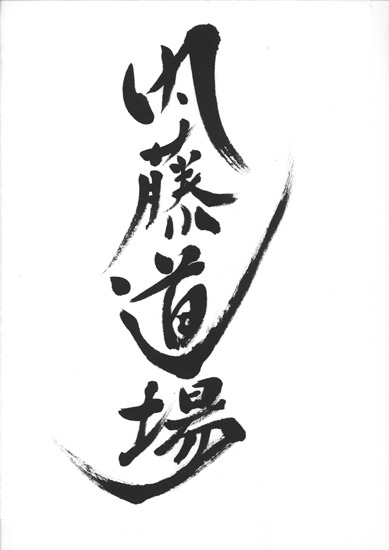 内藤道場